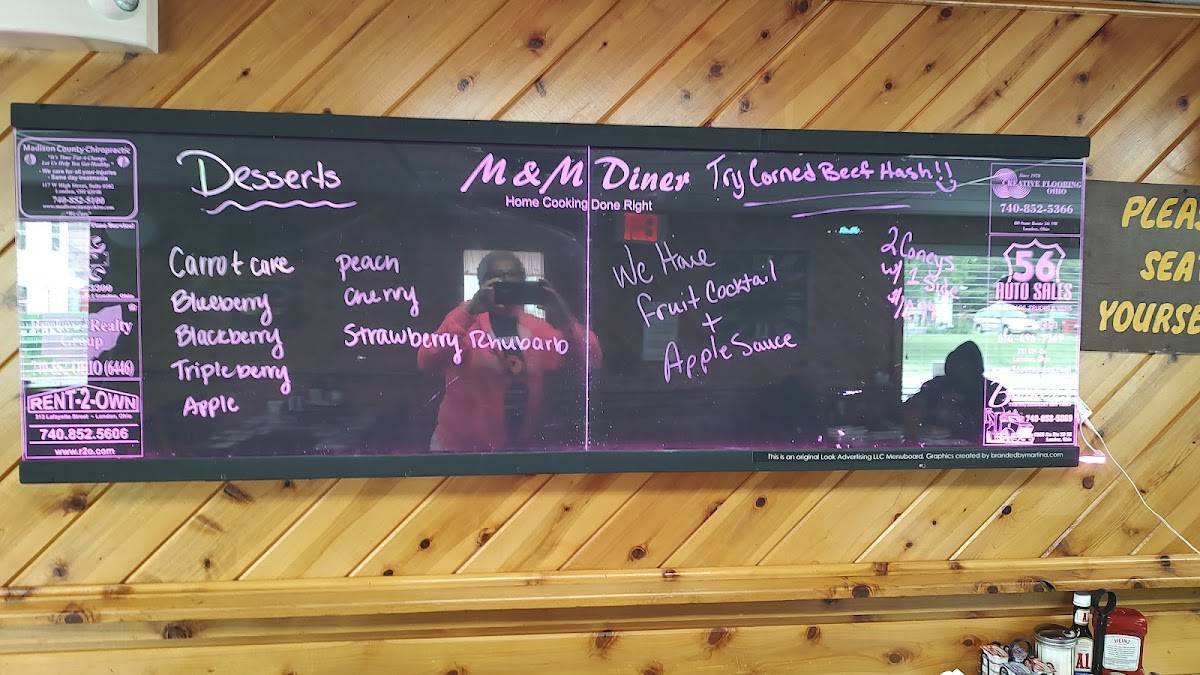 Madison County Chiropractic
"It's Time For A Change,
Let Us Help You Get Healthy."
• We care for all your injuries
• Same day treatments
117 W High Street, Suite
London, OH
740-852-5100
"We Care"
London, Ohio
Realty
Group
OHIO (6446)
RENT-2-OWN
213 Lafayette Street • London, Ohio
740.852.5606
www.r2o.com
Desserts
Carrot cake
Blueberry
Blackberry
Tripleberry
Apple
peach
Cherry
Strawberry Rhubarb
M & M Diner
Home Cooking Done Right
Try Corned Beef Hash!!
We Have
Fruit Cocktail
+
Apple Sauce
2 Coneys
w/ 1 Side
Since 1975
CREATIVE FLOORING
OHIO
740-852-5366
London, Ohio
56
AUTO SALES
London, Oh
740-852-5089
London, Oh
This is an original Look Advertising LLC Menuboard. Graphics created by brandedbymartina.com
PLEAS
SEA
YOURSE
HEINZ
A1